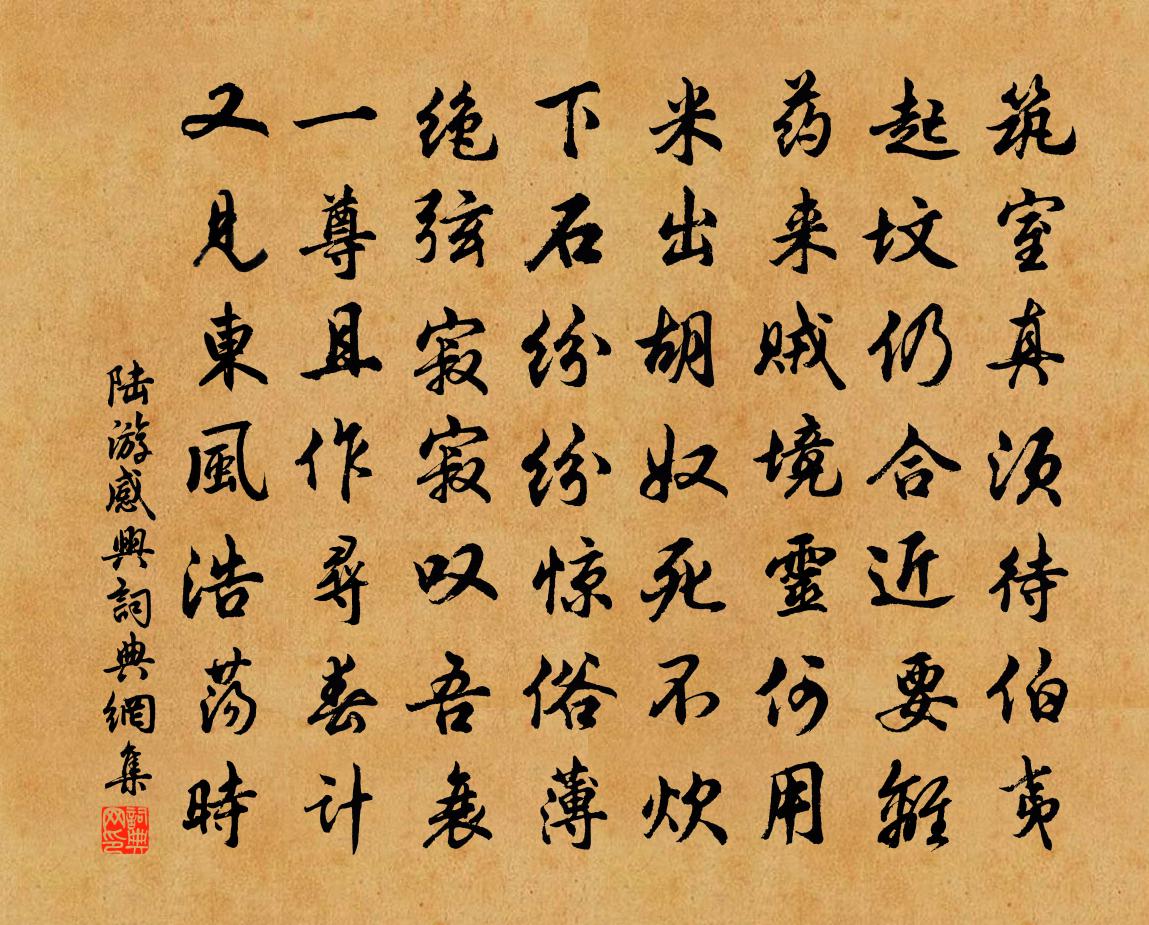 筑室真须待伯夷
起坟仍合近要離
药来贼境靈何用
米出胡奴死不炊
下石纷纷惊俗薄
绝弦寂寂叹吾衰
一尊且作尋春计
又見東風浩荡時
陆游感興詞典網集
詞典网印